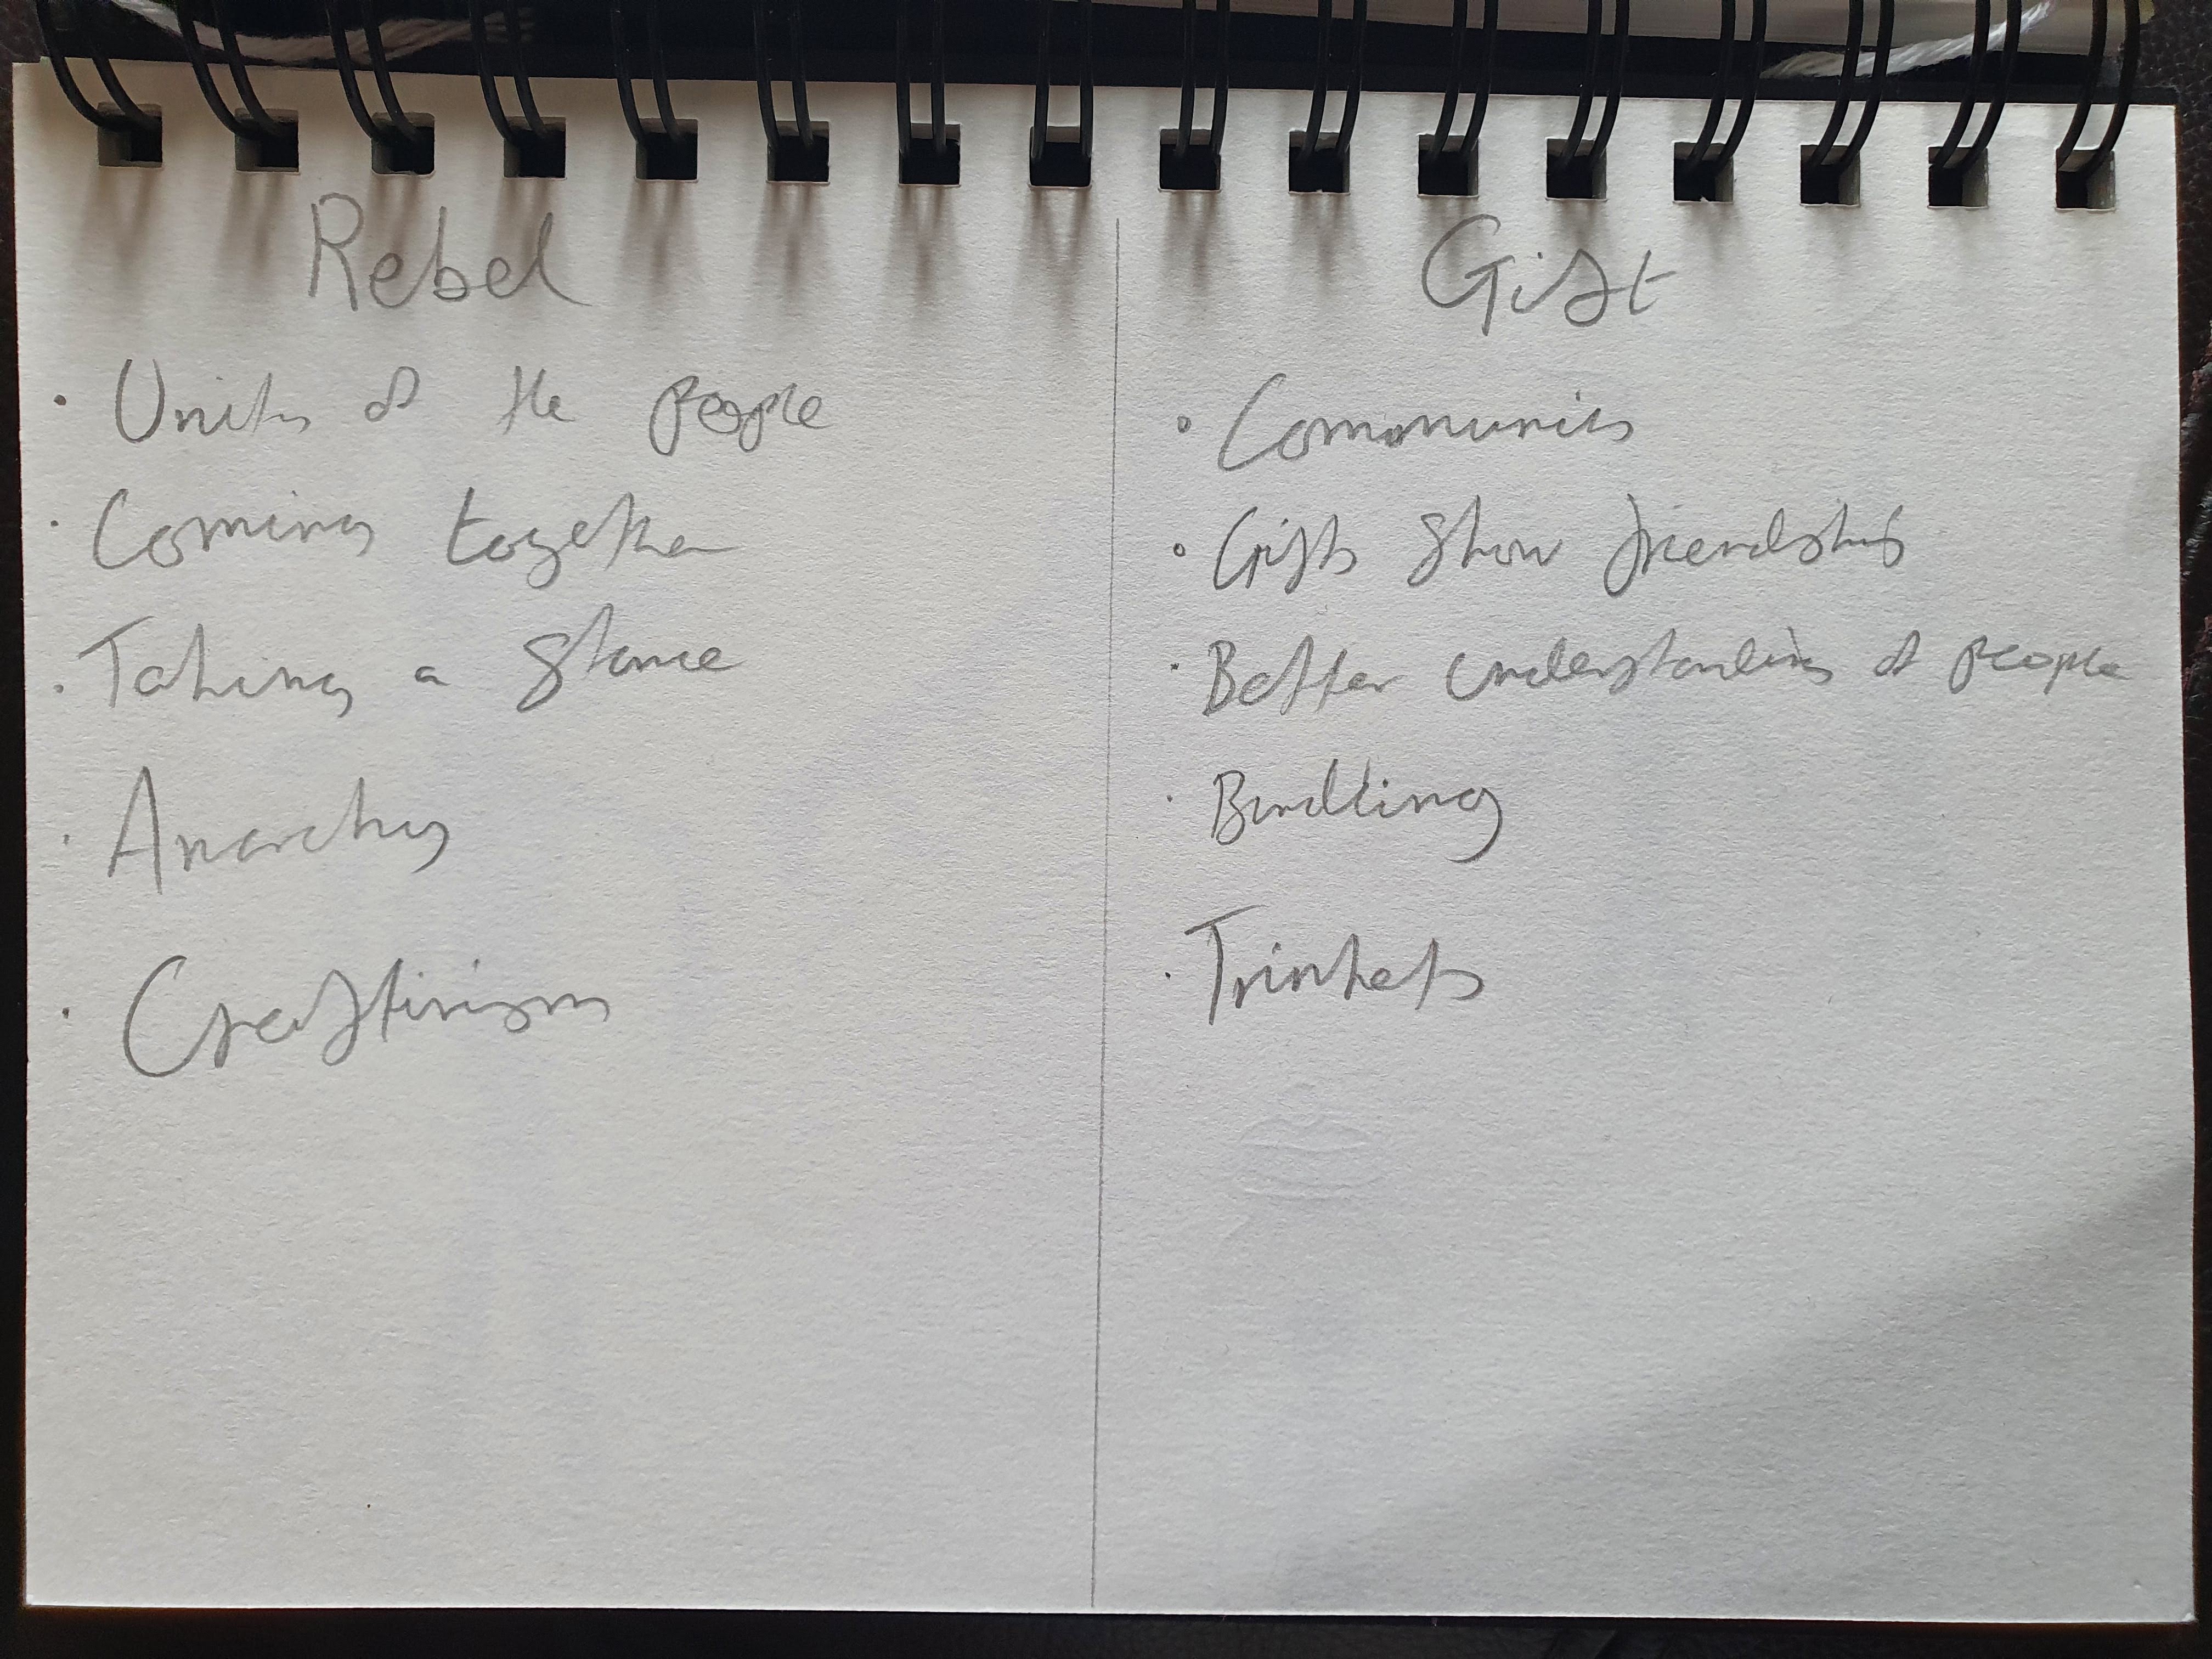 Rebel
· Unity of the people
· Coming together
· Taking a stance
· Anarchy
· Craftivism
Gift
· Community
· Gifts show friendship
· Better understanding of people
· Bundling
· Trinkets